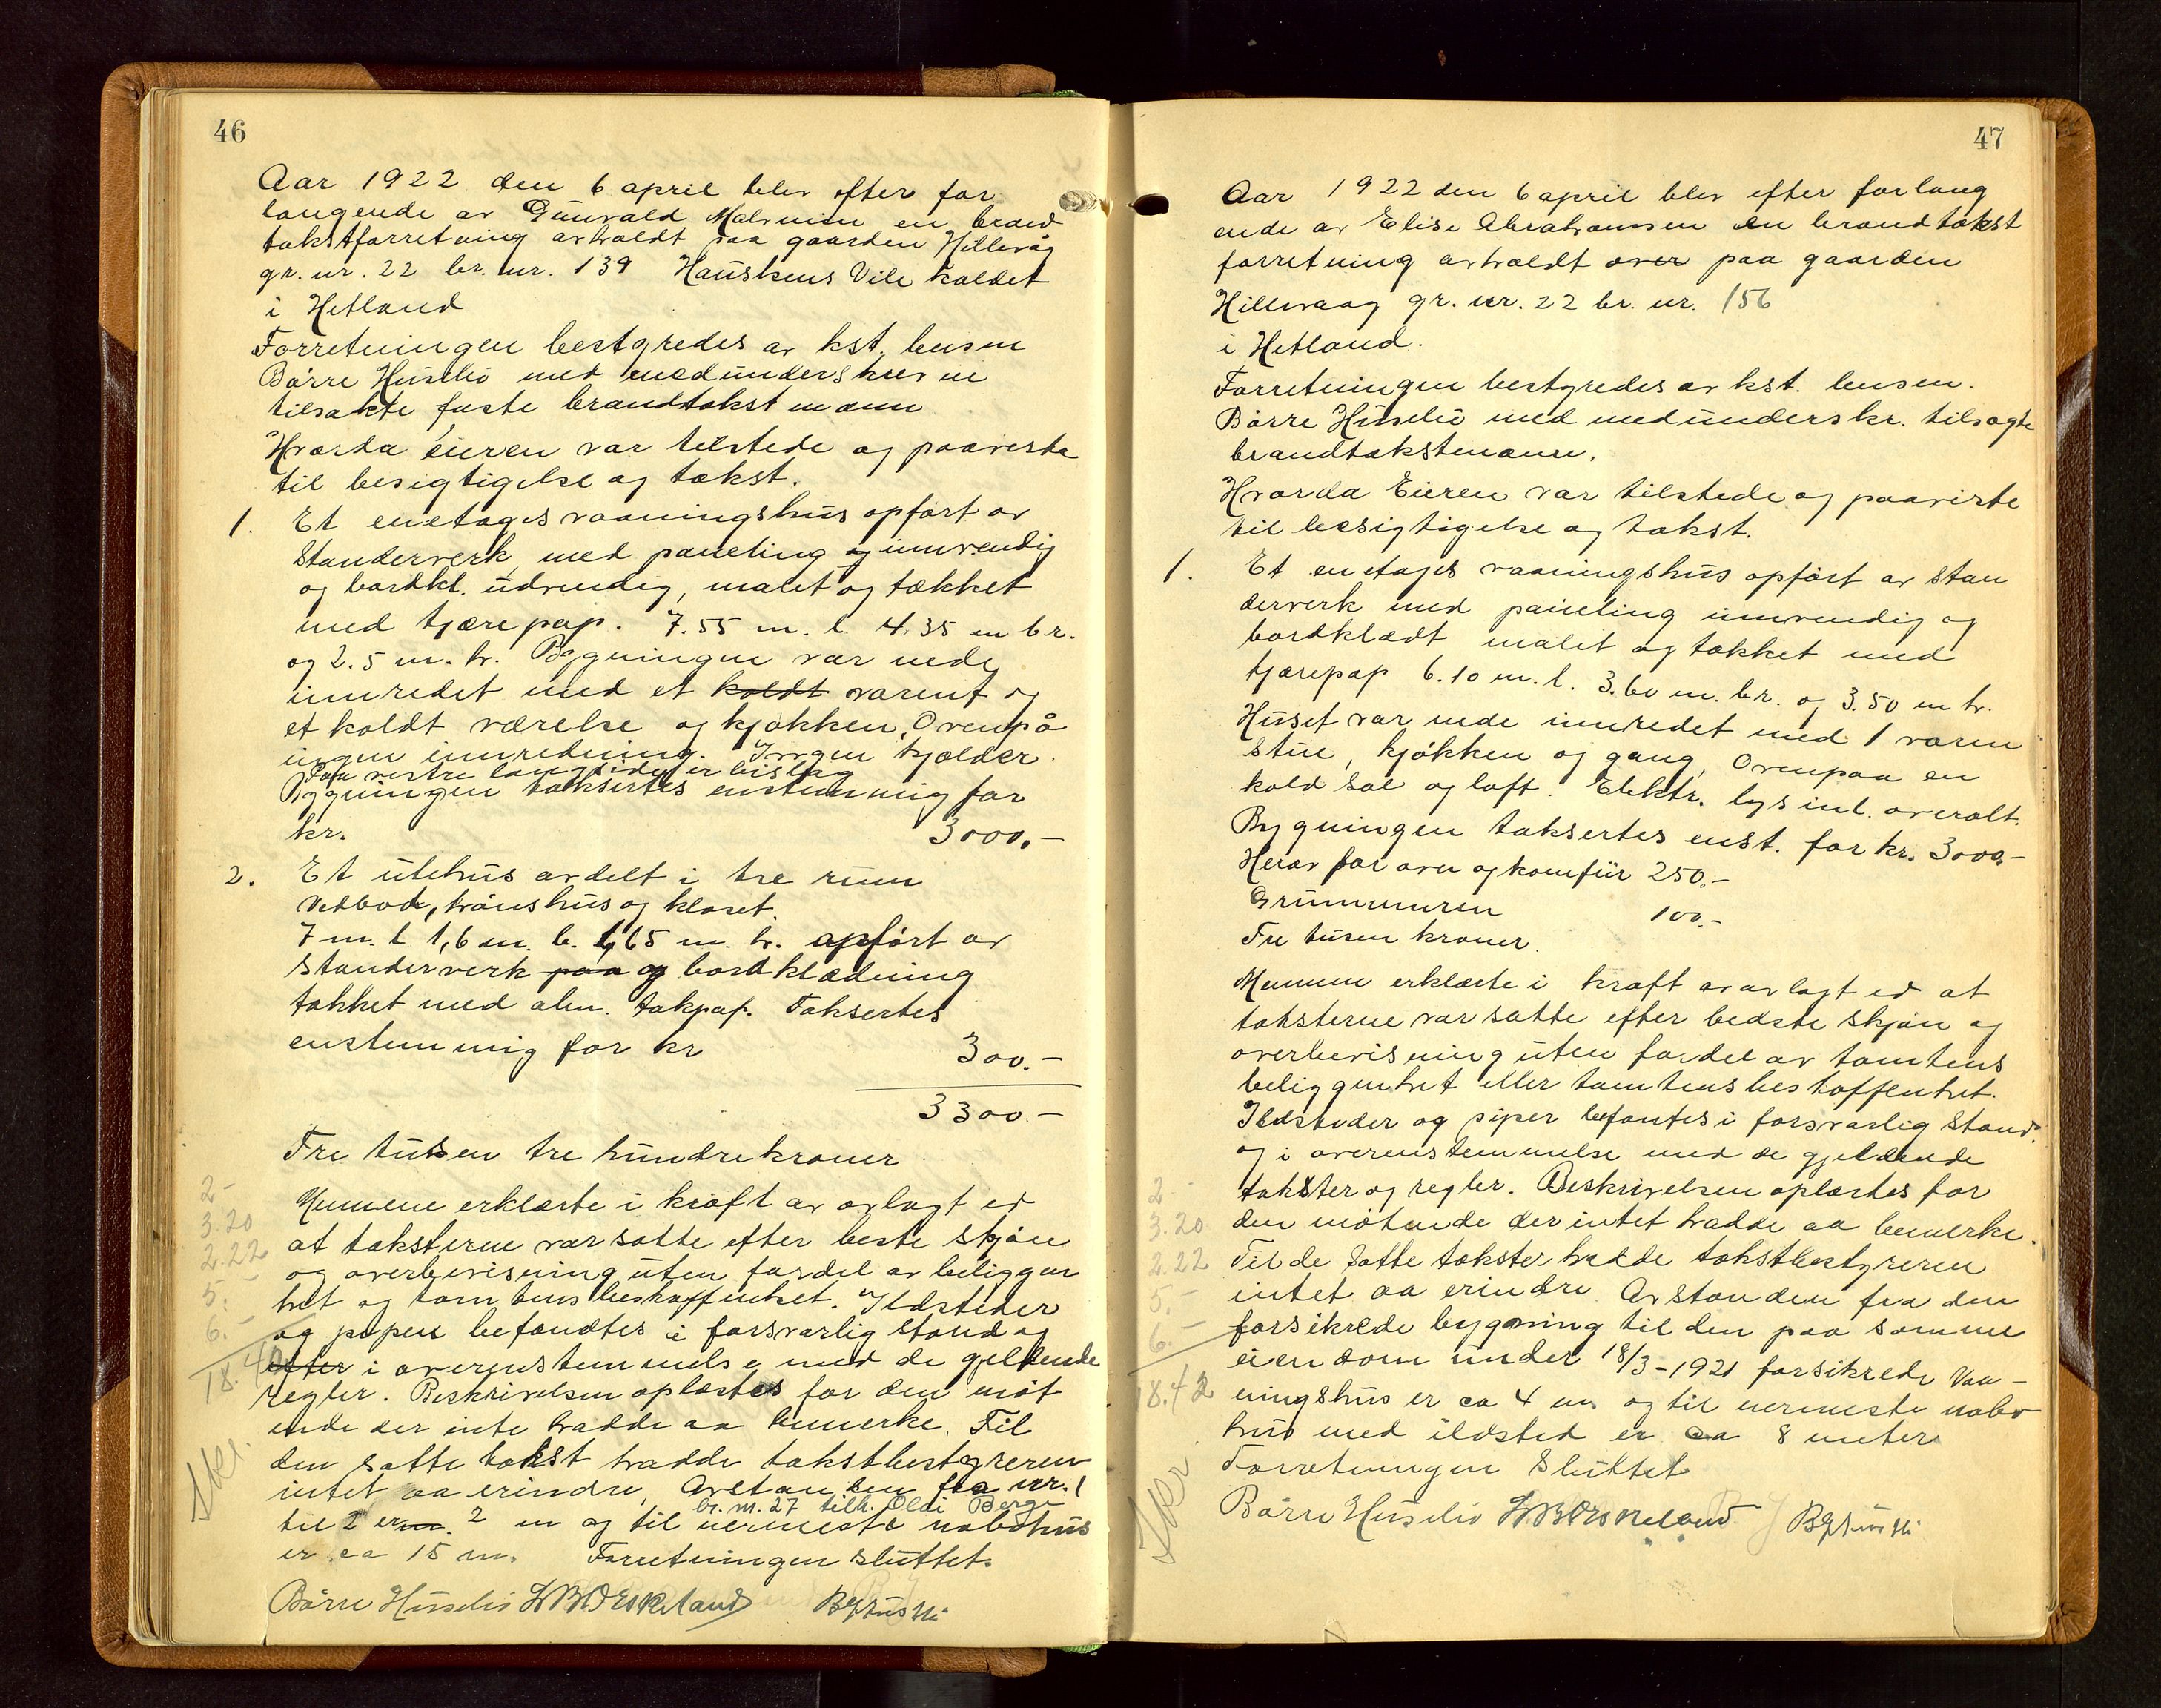 46
Aar 1922 den 6 april blev efter for
langende av Gunvald Malmin en brand
takstforretning avholdt paa gaarden Hillevåg
gr. nr. 22 br. nr. 139 Hauskens Vile kaldet
i Hetland
Forretningen bestyredes av kst. lensm
Börre Huselid med medunderskrevne
tilsakte faste brandtakstmænn
Hvorda eieren var tilstede og paaviste
til besigtigelse og takst.
1. Et enetages vaaningshus opført av
standerverk med paneling og innvendig
og bordkl. udvendig, malet og tækket
med tjærepap. 7.55 m. l 4.35 m br.
og 2.5 m. h. Bygningen var nede
innredet med et koldt varent og
et koldt værelse og kjøkken, Ovenpå
ingen innredning. Ingen kjælder.
Paa vestre langside er bislag
Bygningen taksertes enstemmig for
kr. 3000.-
2. Et utehus avdelt i tre rum
vedbod, hønshus og kloset.
7 m. l 1,6 m. b. 1,65 m. h. opført av
standerverk paa og bordklædning
tækket med alm. takpap. Taksertes
enstemmig for kr 300.-
3300.-
Tre tusen tre hundre kroner
Mennene erklærte i kraft av avlagt ed
at taksterne var satte efter beste skjön
og overbevisning uten fordel av beliggen
het og tomtens beskaffenhet. Ildsteder
og piper befandtes i forsvarlig stand og
efter i overenstemmelse med de gjeldende
regler. Beskrivelsen oplæstes for den møt
ende der inte hadde aa bemerke. Til
den satte takst hadde takstbestyreren
intet aa erindre, Avstanden fra nr. 1
br. nr. 27 tilh. Oldi Berge
til 2 er m. 2 m og til nermeste nabohus
er ca 15 m. Forretningen sluttet.
Börre Huselid L B Oeskeland
2-
3.20
2.22
5.-
6.-
18.42
47
Aar 1922 den 6 april blev efter forlang
ende av Elise Abrahamsen en brandtakst
forretning avholdt over paa gaarden
Hillevaag gr. nr. 22 br. nr. 156
i Hetland.
Forretningen bestyredes av kst. lensm.
Börre Huselid med medunderskr. tilsagte
brandtakstmænn.
Hvorda Eieren var tilstede og paaviste
til besigtigelse og takst.
1. Et enetages vaaningshus opført av stan
derverk med paneling innvendig og
bordklædt malet og tækket med
tjærepap 6.10 m. l. 3.60 m. br. og 3.50 m h.
Huset var nede innredet med 1 varm
stue, kjøkken og gang, Ovenpaa en
kold sal og loft. Elektr. lys inl. overalt.
Bygningen taksertes enst. for kr. 3000.-
Herav for ovn og komfür 250.-
Grunnmuren 100.-
Tre tusen kroner.
Mennene erklærte i kraft av avlagt ed at
taksterne var satte efter bedste skjøn og
overbevisning uten fordel av tomtens
beliggenhet eller tomtens beskaffenhet.
Ildsteder og piper befantes i forsvarlig stand
og i overenstemmelse med de gjeldende
takster og regler. Beskrivelsen oplæstes for
den møtende der intet hadde aa bemerke.
Til de satte takster hadde takstbestyreren
intet aa erindre Avstanden fra den
forsikrede bygning til den paa samme
eiendom under 18/3-1921 forsikrede Vaa-
ningshus er ca 4 m og til nermeste nabo
hus med ildsted er ca 8 meter
Forretningen sluttet
Börre Huselid L B Oeskeland
2.-
3.20
2.22
5.-
6.-
18.42